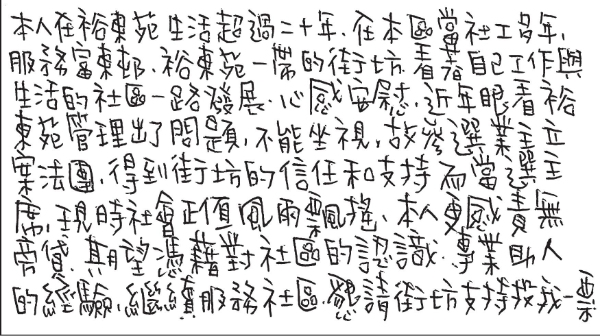 本人在裕東苑生活超過二十年,在本區當社工多年,
服務富東邨、裕東苑一帶的街坊.看著自己工作與
生活的社區一路發展.心感安慰.近年眼看裕
東苑管理出了問題,不能坐視,故參選業主立
案法團,得到街坊的信任和支持而當選主
席,現時社會正值風雨飄搖,本人更感責無
旁貸.期望憑藉對社區的認識.專業助人
的經驗,繼續服務社區,懇請街坊支持投我一票